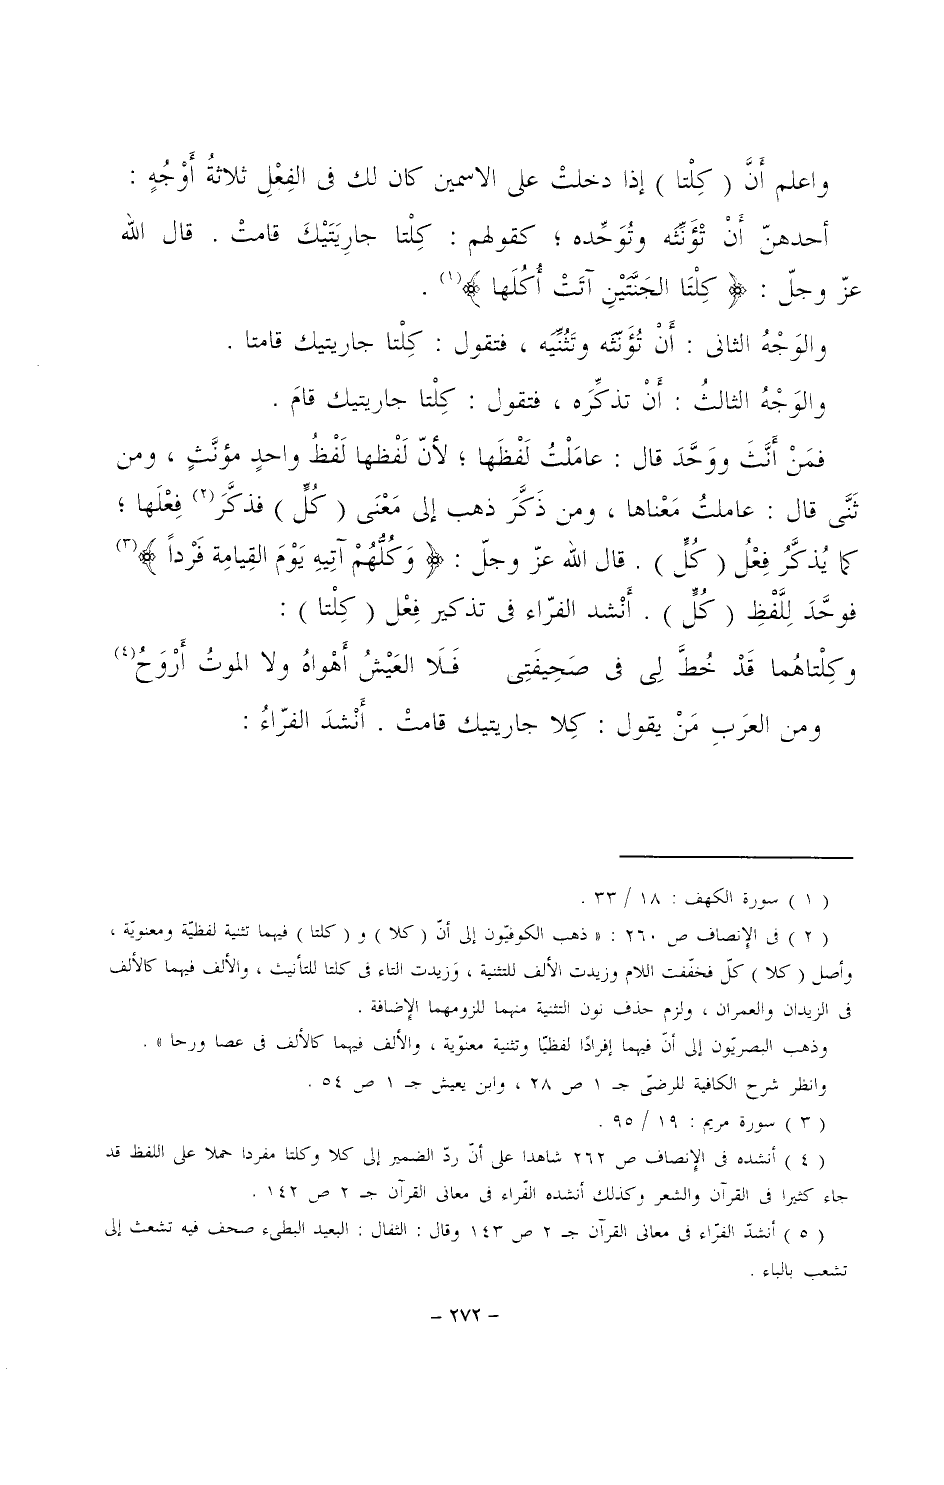 واعلم أَنَّ ( كِلْتا ) إذا دخلتْ على الاسمين كان لك فى الفِعْلِ ثلاثةُ أَوْجُهٍ :
أحدهنّ أَنْ تُؤَنِّثَه وتُوَحِّده ؛ كقولهم : كِلْتا جارِيَتَيْكَ قامتْ . قال الله
عزّ وجلّ : ﴿ كِلْتَا الجَنَّتَيْنِ آتَتْ أُكُلَها ﴾(١) .
والوَجْهُ الثانى : أَنْ تُؤَنِّثَه وتُثَنِّيَه ، فتقول : كِلْتا جاريتيك قامتا .
والوَجْهُ الثالثُ : أَنْ تذكِّرَه ، فتقول : كِلْتا جاريتيك قامَ .
فمَنْ أَنَّثَ ووَحَّدَ قال : عامَلْتُ لَفْظَها ؛ لأنّ لَفْظها لَفْظُ واحدٍ مؤنَّثٍ ، ومن
ثَنَّى قال : عاملتُ مَعْناها ، ومن ذَكَّرَ ذهب إلى مَعْنَى ( كُلٍّ ) فذكَّرَ(٢) فِعْلَها ؛
كما يُذكَّرُ فِعْلُ ( كُلٍّ ) . قال الله عزّ وجلّ : ﴿ وَكُلُّهُمْ آتِيهِ يَوْمَ القِيامِة فَرْداً ﴾(٣)
فوحَّدَ لِلَّفْظِ ( كُلٍّ ) . أَنْشد الفرّاء فى تذكير فِعْل ( كِلْتا ) :
وكِلْتاهُما قَدْ خُطَّ لِى فى صَحِيفَتِى فَلَا العَيْشُ أَهْواهُ ولا الموتُ أَرْوَحُ(٤)
ومن العرَبِ مَنْ يقول : كِلا جاريتيك قامتْ . أَنْشدَ الفرّاءُ :
( ١ ) سورة الكهف : ١٨ / ٣٣ .
( ٢ ) فى الإنصاف ص ٢٦٠ : « ذهب الكوفيّون إلى أنّ ( كلا ) و ( كلتا ) فيهما تثنية لفظيّة ومعنويّة ،
وأصل ( كلا ) كلّ فخفّفت اللام وزيدت الألف للتثنية ، وَزيدت التاء فى كلتا للتأنيث ، والألف فيهما كالألف
فى الزيدان والعمران ، ولزم حذف نون التثنية منهما للزومهما الإضافة .
وذهب البصريّون إلى أنّ فيهما إفرادًا لفظيًا وتثنية معنوّية ، والألف فيهما كالألف فى عصا ورحا » .
وانظر شرح الكافية للرضىّ جـ ١ ص ٢٨ ، وابن يعيش جـ ١ ص ٥٤ .
( ٣ ) سورة مريم : ١٩ / ٩٥ .
( ٤ ) أنشده فى الإنصاف ص ٢٦٢ شاهدا على أنّ ردّ الضمير إلى كلا وكلتا مفردا حملا على اللفظ قد
جاء كثيرا فى القرآن والشعر وكذلك أنشده الفّراء فى معانى القرآن جـ ٢ ص ١٤٢ .
( ٥ ) أنشدّ الفرّاء فى معانى القرآن جـ ٢ ص ١٤٣ وقال : الثفال : البعيد البطىء صحف فيه تشعث إلى
تشعب بالباء .
– ٢٧٢ –